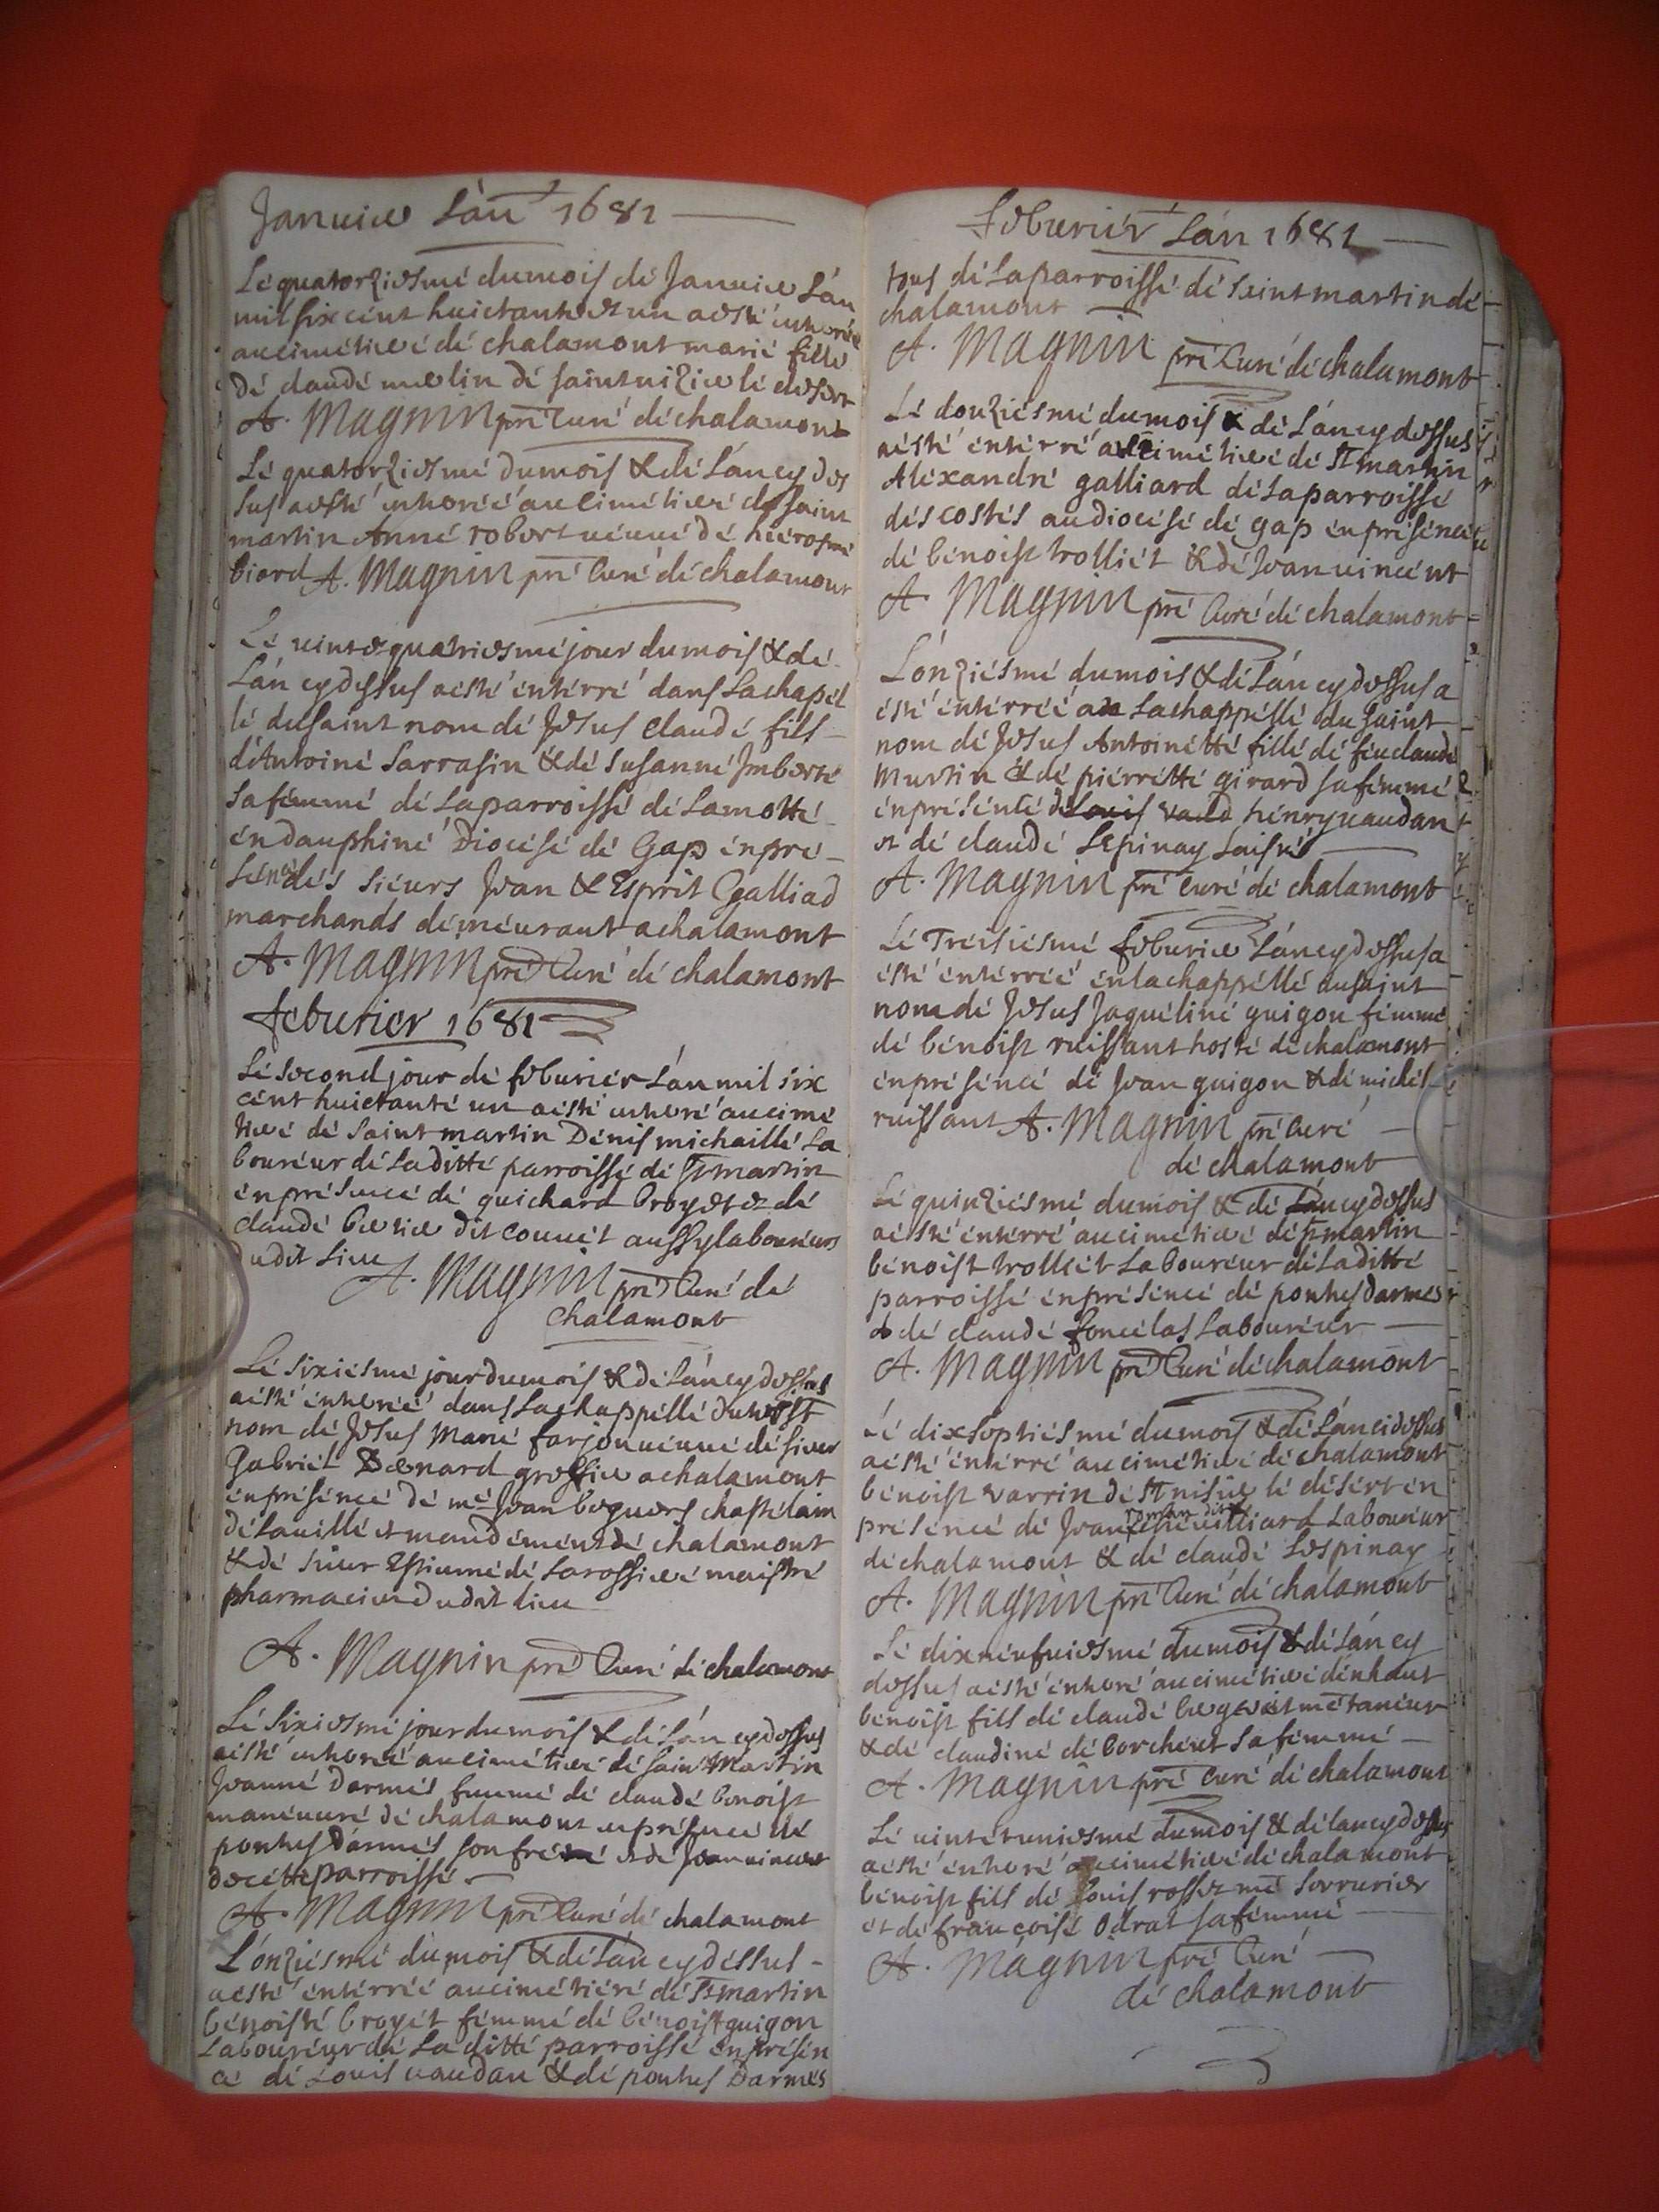 Januier L'an 1681
Le quatorziesme du mois de Januier L'an
mil six cent huictante et un a esté enterrée
au cimetiere de chalamont marie fille
de claude merlin de saint nizier le desert
A. Magnin pre Curé de chalamont
Le quatorziesme du mois & de L'an cy des
sus a esté enterrée au cimetiere de saint
martin Anne robert veuue de hierosme
biord A. Magnin pre Curé de chalamont
Le uint et quatriesme jour du mois & de
L'an cy dessus a esté enterré dans La chapel
le du saint nom de Jesus Claude fils
d'Antoine Sarrasin & de Susanne Imberte
sa femme de La parroisse de La motte
en dauphiné Diocese de Gap en pre
sence des sieurs Jean & Esprit Galliad
marchands demeurant a chalamont
A. Magnin pre Curé de chalamont
feburier 1681
Le second jour de feburier L'an mil six
cent huictante un a esté enterré au cime
tiere de saint martin Denis michaille La
boureur de La ditte parroisse de St martin
en presence de guichard broyet et de
claude bertier dit couuet aussy laboureurs
dudit Lieu
A. Magnin pre Curé de
chalamont
Le sixiesme jour du mois & de L'an cy dessus
a esté enterrée dans La chappelle du st
nom de Jesus Marie farjon ueuue de sieur
Gabriel Bernard greffier a chalamont
en presence de me Jean beguers chastelain
de La uille et mandement de chalamont
& de sieur Estienne de La rossiere maistre
pharmacien dudit lieu
A. Magnin pre Curé de chalamont
Le sixiesme jour du mois & de L'an cy dessus
a esté enterrée au cimetiere de saint Martin
Jeanne Darmes femme de claude benoist
maneuure de chalamont en presence de
ponthus Darmes son frere et de Jean uincent
de cette parroisse
A. Magnin pre Curé de chalamont
L'onziesme du mois & de L'an cy dessus
a esté enterrée au cimetiere de St martin
benoiste broyet femme de benoist guigon
Laboureur de La ditte parroisse en presen
ce de Louis uaudan & de ponthus Darmes
feburier L'an 1681
tous de La parroisse de saint martin de
chalamont
A. Magnin pre Curé de chalamont
Le douziesme du mois & de L'an cy dessus
a esté enterré au cimetiere de St martin
Alexandre galliard de La parroisse
des costes au diocese de gap en presence
de benoist trolliet & de Jean uincent
A. Magnin pre Curé de chalamont
L'onziesme du mois & de L'an cy dessus a
esté enterrée a La chappelle du saint
nom de Jesus Antoinette fille de feu claude
Martin & de pierrette girard sa femme
en presence de henry uaudan
et de claude Lepinay Laisné
A. Magnin pre Curé de chalamont
Le Treisiesme feburier L'an cy dessus a
esté enterrée en la chappelle du saint
nom de Jesus Jaqueline guigon femme
de benoist ruissant hoste de chalamont
en presence de Jean guigon & de michel
ruissant A. Magnin pre Curé
de chalamont
Le quinziesme du mois & de L'an cy dessus
a esté enterré au cimetiere de St martin
benoist trolliet Laboureur de La ditte
parroisse en presence de ponthus darmes
& de claude foncelas Laboureur
A. Magnin pre Curé de chalamont
Le dixseptiesme du mois & de L'an ci dessus
a esté enterré au cimetiere de chalamont
benoist varrin de St nisier le désert en
presence de Jean roman dit Laboureur
de chalamont & de claude Lespinay
A. Magnin pre Curé de chalamont
Le dixneufuiesme du mois & de L'an cy
dessus a esté enterré au cimetiere d'enhaut
benoist fils de claude me taneur
& de claudine de borchert sa femme
A. Magnin pre Curé de chalamont
Le uint et uniesme du mois & de l'an cy dessus
a esté enterré au cimetiere de chalamont
benoist fils de Louis rosset me serrurier
et de françoise Odrat sa femme
A. Magnin pre Curé
de chalamont